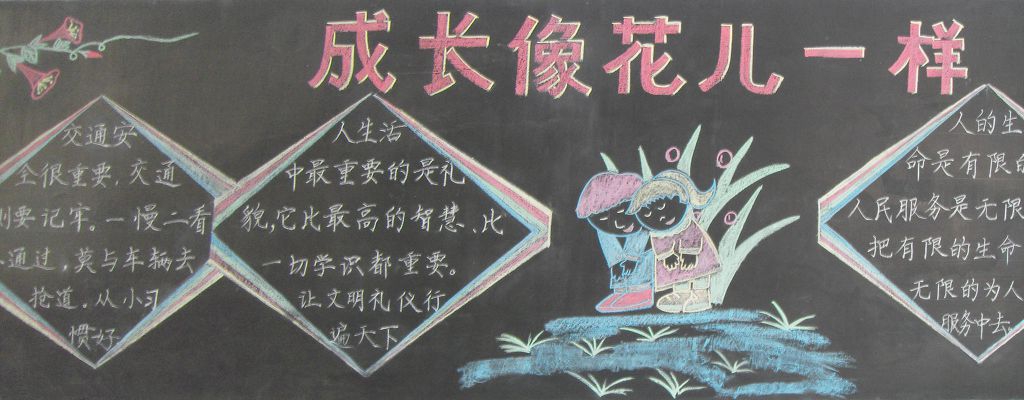 成长像花儿一样
交通安
全很重要,交通
则要记牢。一慢二看
通过,莫与车辆去
抢道。从小习
惯好
人生活
中最重要的是礼
貌,它比最高的智慧、比
一切学识都重要。
让文明礼仪行
遍天下
人的生
命是有限的
人民服务是无限
把有限的生命
无限的为人
服务中去。